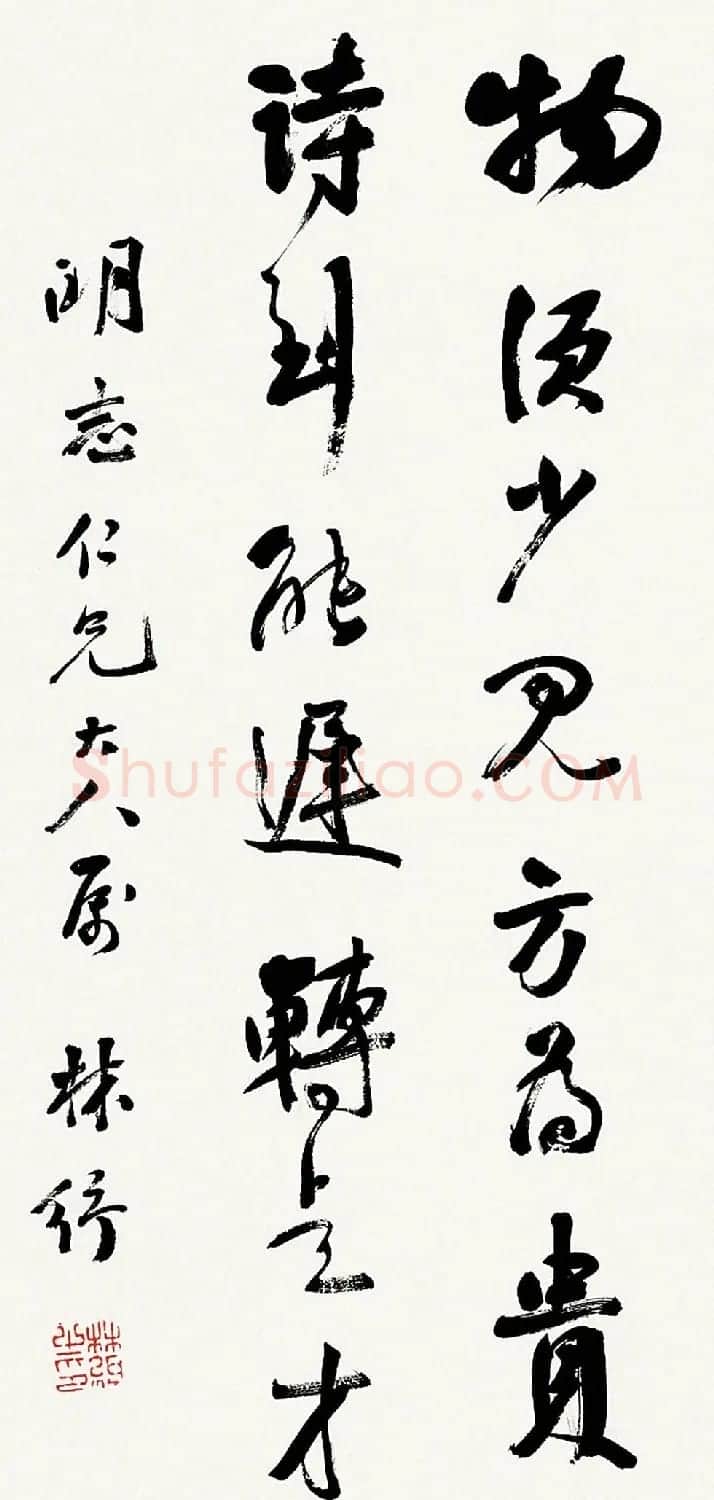 物须少见方为貴
詩到能遲轉是才
明志仁兄大人属 林纾
Shufaziliao.COM